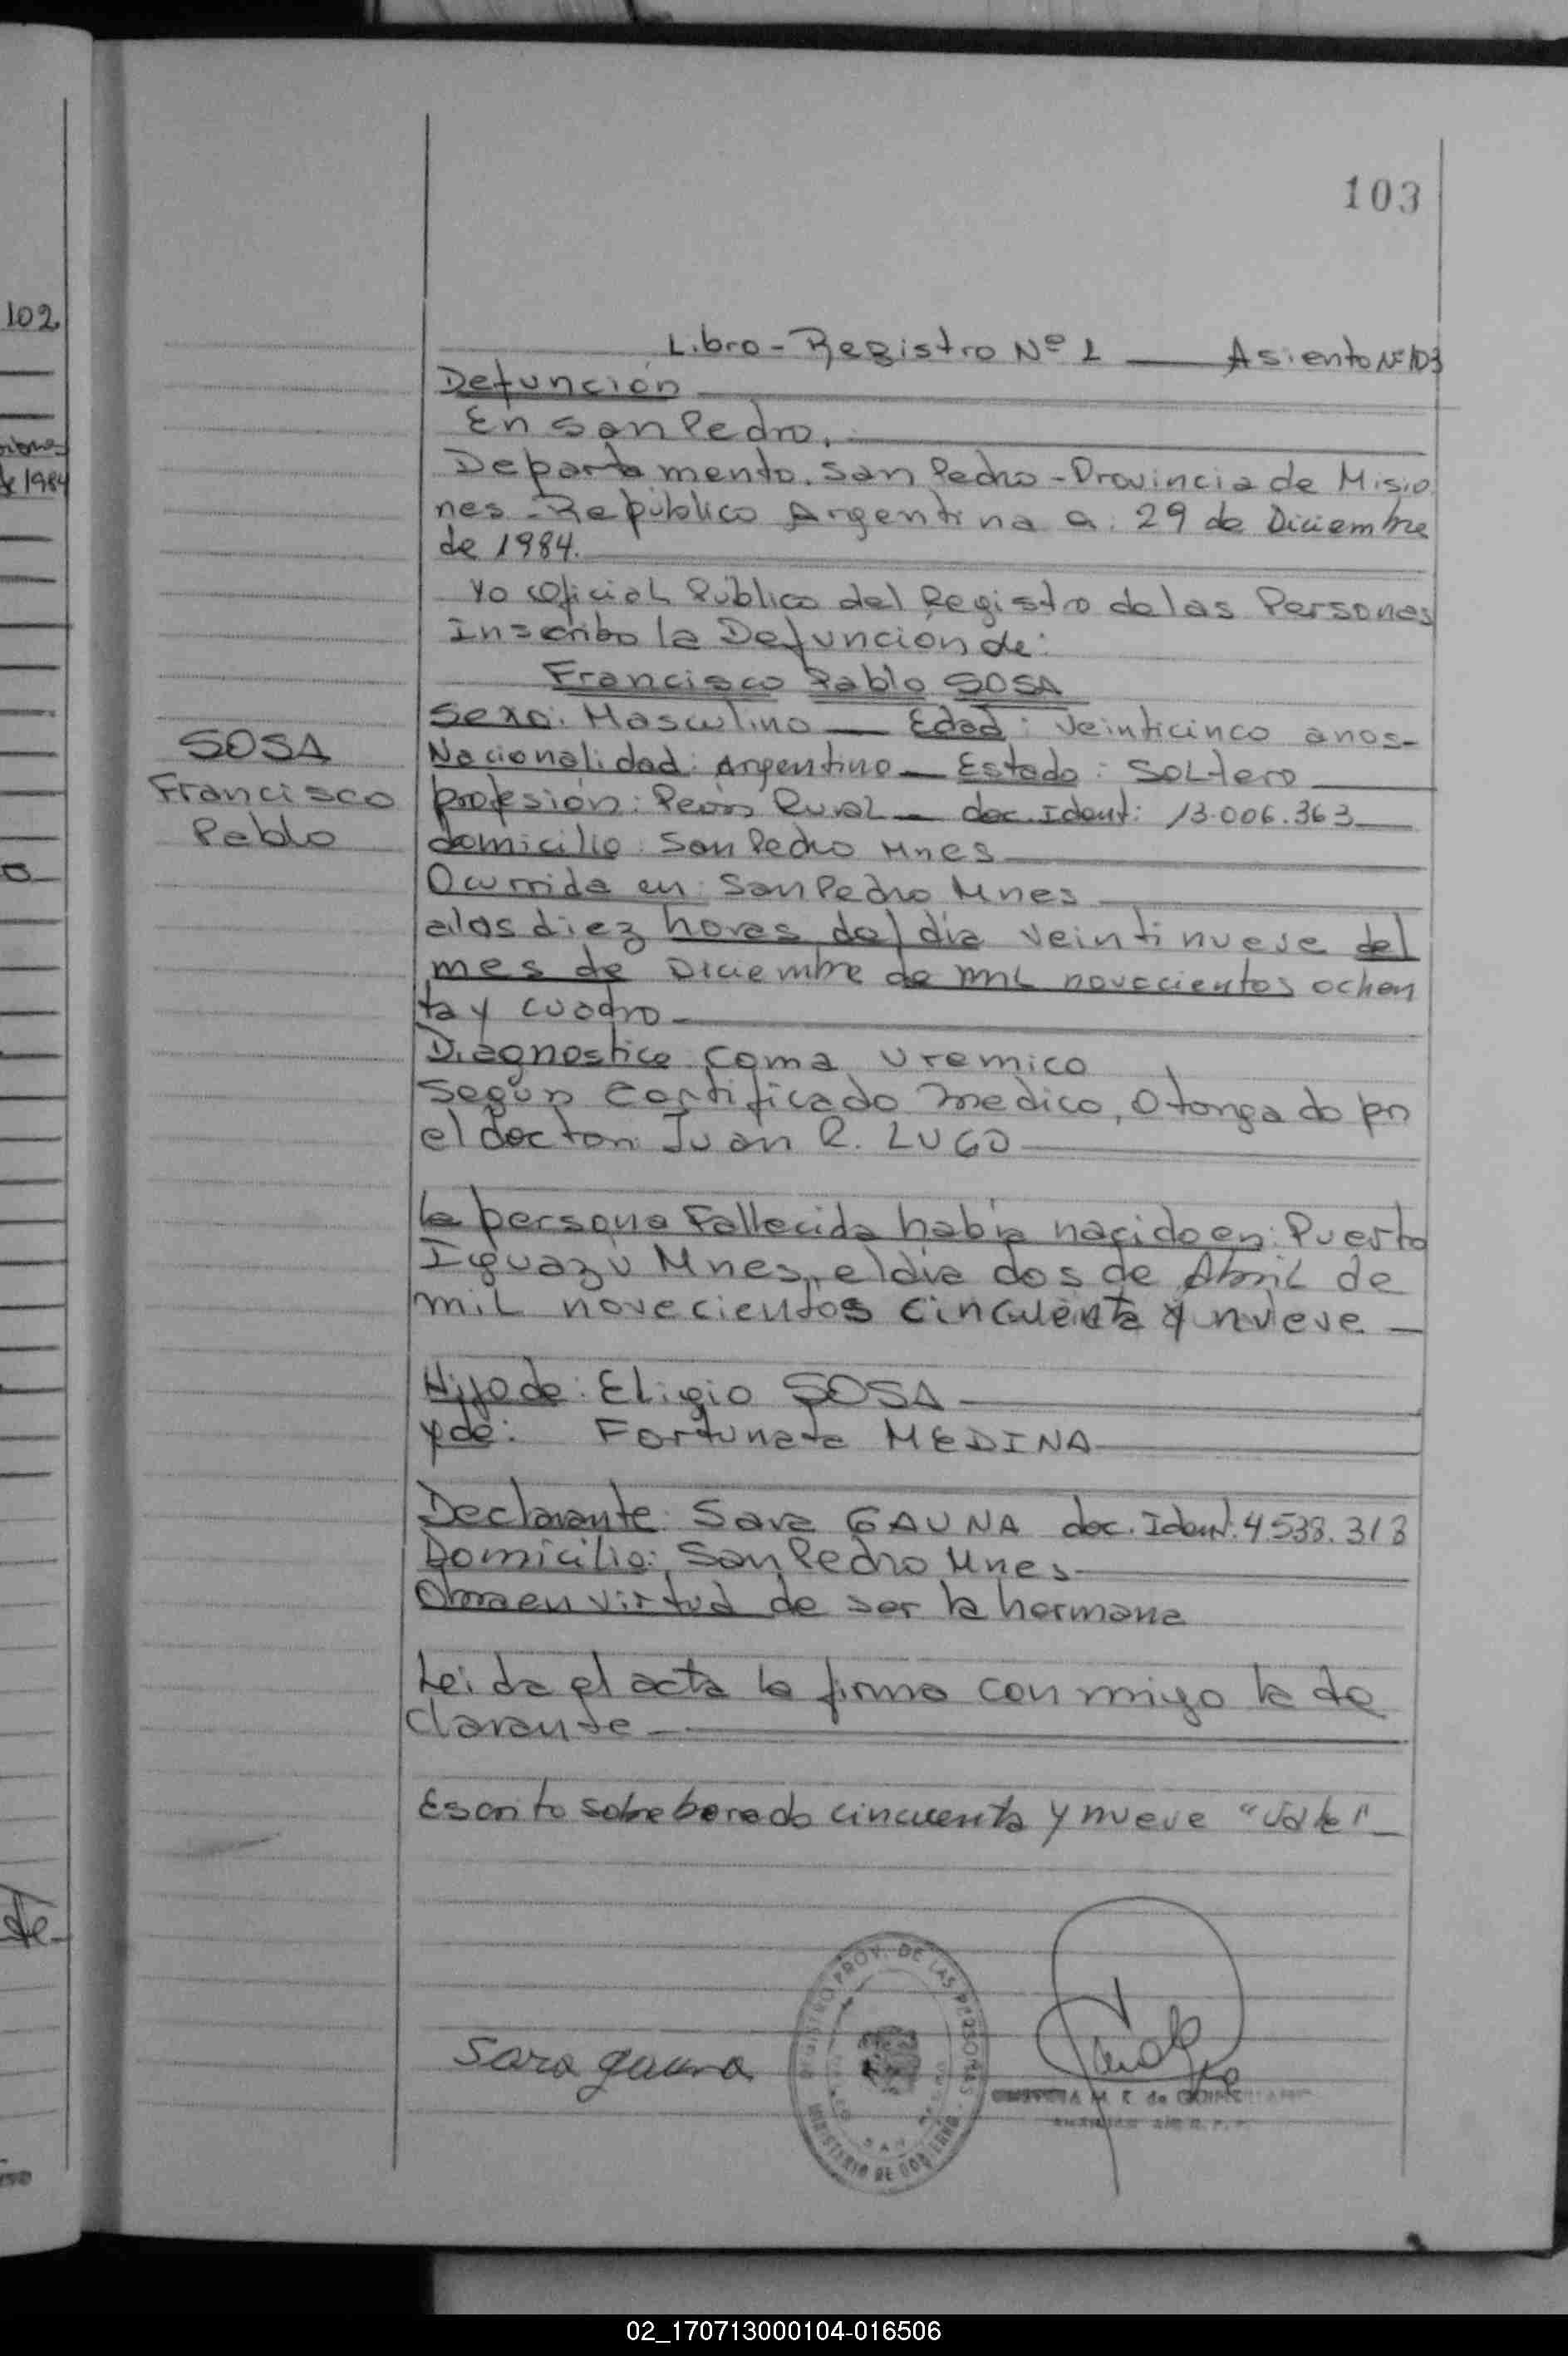 103
102
de 1984
Libro-Registro Nº 1 — Asiento Nº 103
Defunción
En San Pedro,
Departamento. San Pedro - Provincia de Misio
nes - República Argentina a: 29 de Diciembre
de 1984.
Yo Oficial Público del Registro de las Personas
Inscribo la Defunción de:
Francisco Pablo SOSA
Sexo: Masculino — Edad: Veinticinco anos-
SOSA
Francisco
Pablo
Nacionalidad: Argentino — Estado: Soltero
profesión: Peón Rural — doc. Ident: 13.006.363
domicilio: San Pedro Mnes
Ocurrida en: San Pedro Mnes
a las diez horas del día veintinueve del
mes de Diciembre de mil novecientos ochen
ta y cuatro
Diagnostico Coma Uremico
Según Certificado medico, Otorgado por
el doctor: Juan R. LUGO
la persona Fallecida había nacido en: Puerto
Iguazú Mnes, el día dos de Abril de
mil novecientos cincuenta y nueve —
Hijo de: Eligio SOSA
y de: Fortunata MEDINA
Declarante: Sara GAUNA doc. Ident: 4.538.313
Domicilio: San Pedro Mnes
Obra en virtud de ser la hermana
Leida el acta la firma conmigo la de
clarante
Escrito sobre borrado cincuenta y nueve "vale"
Sara gauna
REGISTRO PROV. DE LAS PERSONAS
MINISTERIO DE GOBIERNO
SAN
M. E. de
02_170713000104-016506